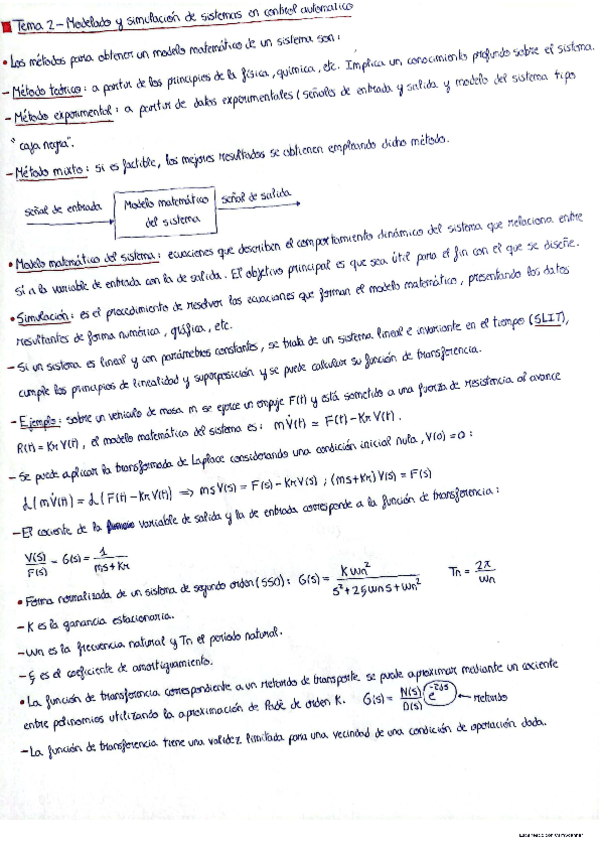 Tema 2 - Modelado y simulación de sistemas en control automático
• Los métodos para obtener un modelo matemático de un sistema son:
- Método teórico: a partir de los principios de la física, química, etc. Implica un conocimiento profundo sobre el sistema.
- Método experimental: a partir de datos experimentales (señales de entrada y salida y modelo del sistema tipo
"caja negra".
- Método mixto: si es factible, los mejores resultados se obtienen empleando dicho método.
señal de entrada
Modelo matemático
del sistema
señal de salida
• Modelo matemático del sistema: ecuaciones que describen el comportamiento dinámico del sistema que relaciona entre
sí a la variable de entrada con la de salida. El objetivo principal es que sea útil para el fin con el que se diseñe.
• Simulación: es el procedimiento de resolver las ecuaciones que forman el modelo matemático, presentando los datos
resultantes de forma numérica, gráfica, etc.
- Si un sistema es lineal y con parámetros constantes, se trata de un sistema lineal e invariante en el tiempo (SLIT),
cumple los principios de linealidad y superposición y se puede calcular su función de transferencia.
- Ejemplo: sobre un vehículo de masa m se ejerce un empuje F(t) y está sometido a una fuerza de resistencia al avance
R(t) = Kr V(t), el modelo matemático del sistema es: m V̇(t) = F(t) - Kr V(t).
- Se puede aplicar la transformada de Laplace considerando una condición inicial nula, V(0) = 0:
L(m V̇(t)) = L(F(t) - Kr V(t)) => m s V(s) = F(s) - Kr V(s); (ms + Kr) V(s) = F(s)
- El cociente de la variable de salida y la de entrada corresponde a la función de transferencia:
V(s)/F(s) - G(s) = 1/(ms + Kr)
• Forma normalizada de un sistema de segundo orden (SSO): G(s) = K wn²/(s² + 2ς wn s + wn²) Tn = 2π/wn
- K es la ganancia estacionaria.
- wn es la frecuencia natural y Tn el periodo natural.
- ς es el coeficiente de amortiguamiento.
• La función de transferencia correspondiente a un retardo de transporte se puede aproximar mediante un cociente
entre polinomios utilizando la aproximación de Padé de orden K. G(s) = N(s)/D(s) ← retardo
- La función de transferencia tiene una validez limitada para una vecindad de una condición de operación dada.